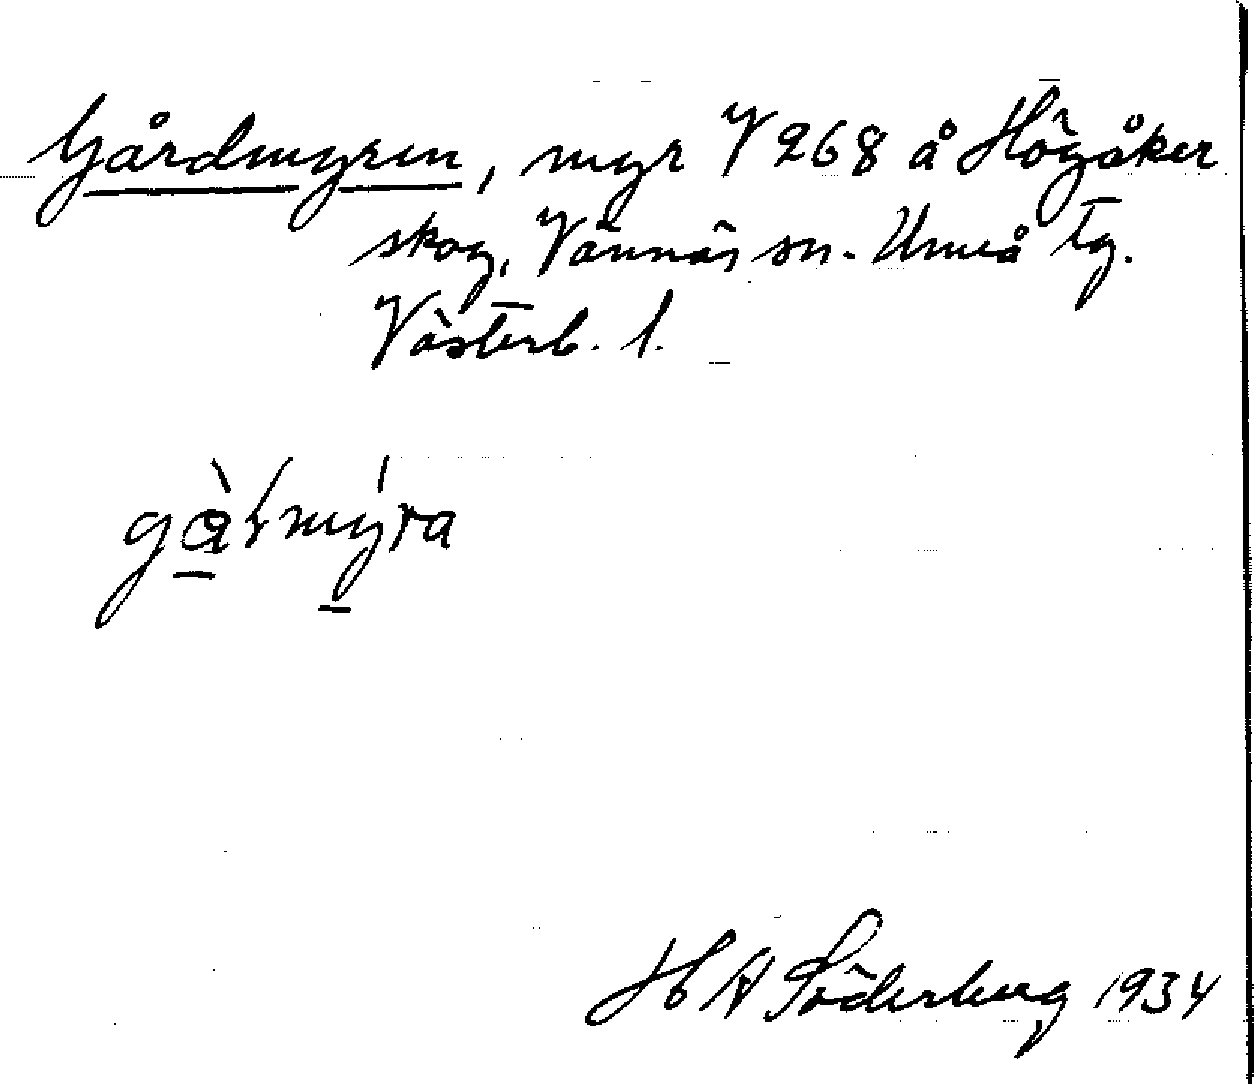 Gårdmyren, myr V 268 å Högåker
skog, Vännäs sn. Umeå tg.
Västerb. l.
H A Söderberg 1934